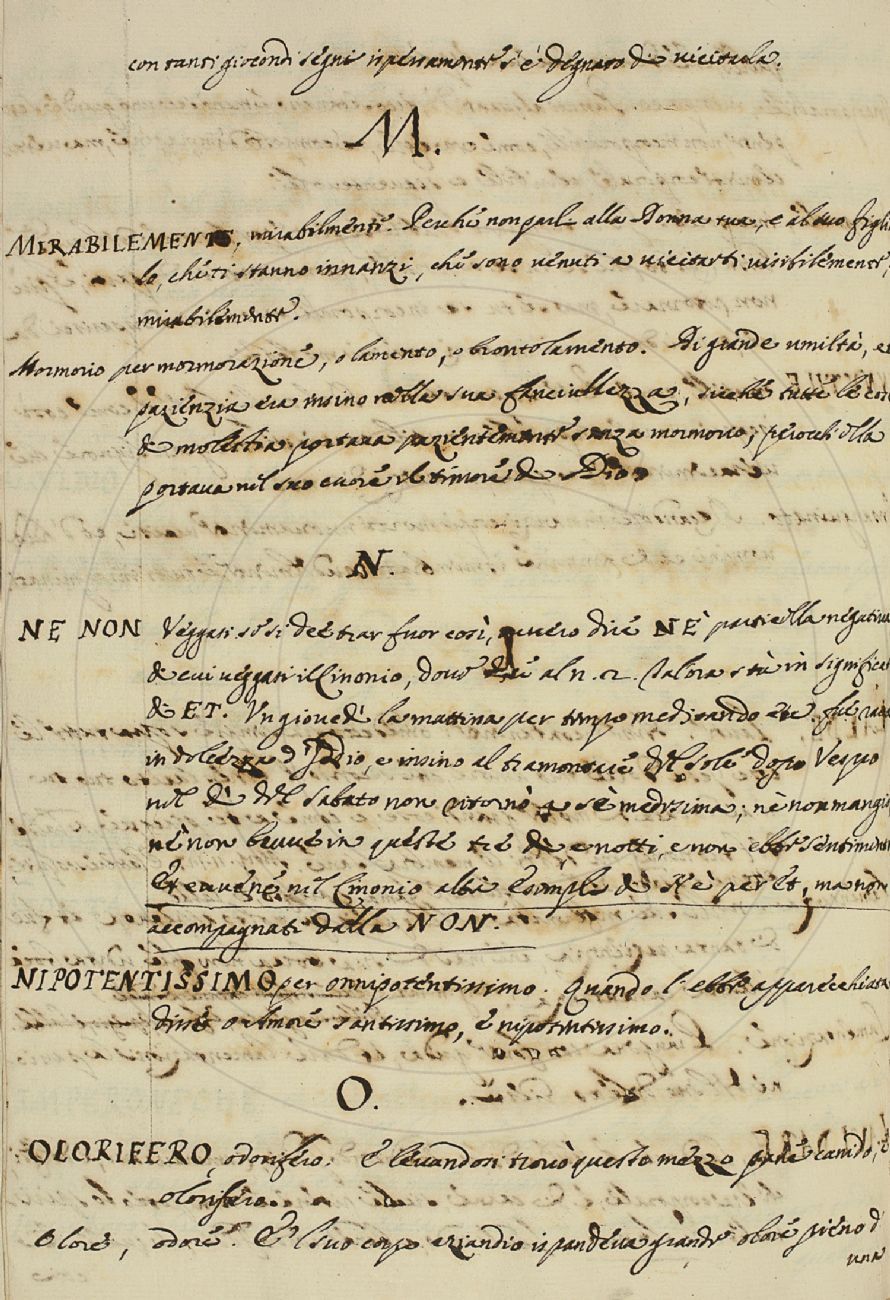 con tanti giocondi segni ispessamente s'è degnato di vicitarla.
M.
MIRABILEMENTE, mirabilmente. Perchè non parli alla Donna tua, e al suo figliuo
lo, che ti stanno innanzi, che sono venuti a vicitarti visibilemente,
mirabilemente.
Mormorio per mormorazione, o lamento, o brontolamento. Di grande umiltà, e
pazienzia era insino nella sua fanciullezza, sicchè tutte le cose
di molestia portava pazientemente senza mormorio, perocch'ella
portava nel suo cuore il timore di Dio
N.
NE NON Veggati se si dee trar fuor così, ovvero dire NÈ particella negativa
di cui veggati il Cinonio, dove dice al n. 2. Talora sta in significato
di ET. Un giovedì la mattina per tempo medicando etc. fue
in dolcezza d'Iddio, e insino al tramontare del sole dopo Vespro
nel dì del Sabato non ritornò a sè medesima; nè non mangiò
nè non bevve in queste tre dì, e notti, e non ebbe sentimento
Et evvene nel Cinonio altri Esempli di Nè per Et, ma non
accompagnati dalla NON.
NIPOTENTISSIMO per onnipotentissimo. Quando l'ebbe apparecchiata
disse o Amore santissimo, e nipotentissimo.
O.
OLORIFERO, odorifero. E levandosi trovò questo mezzo pane candido, e
olorifero.
Olore, odore. E'l suo corpo eziandio ispandeva grande olore pieno d
una